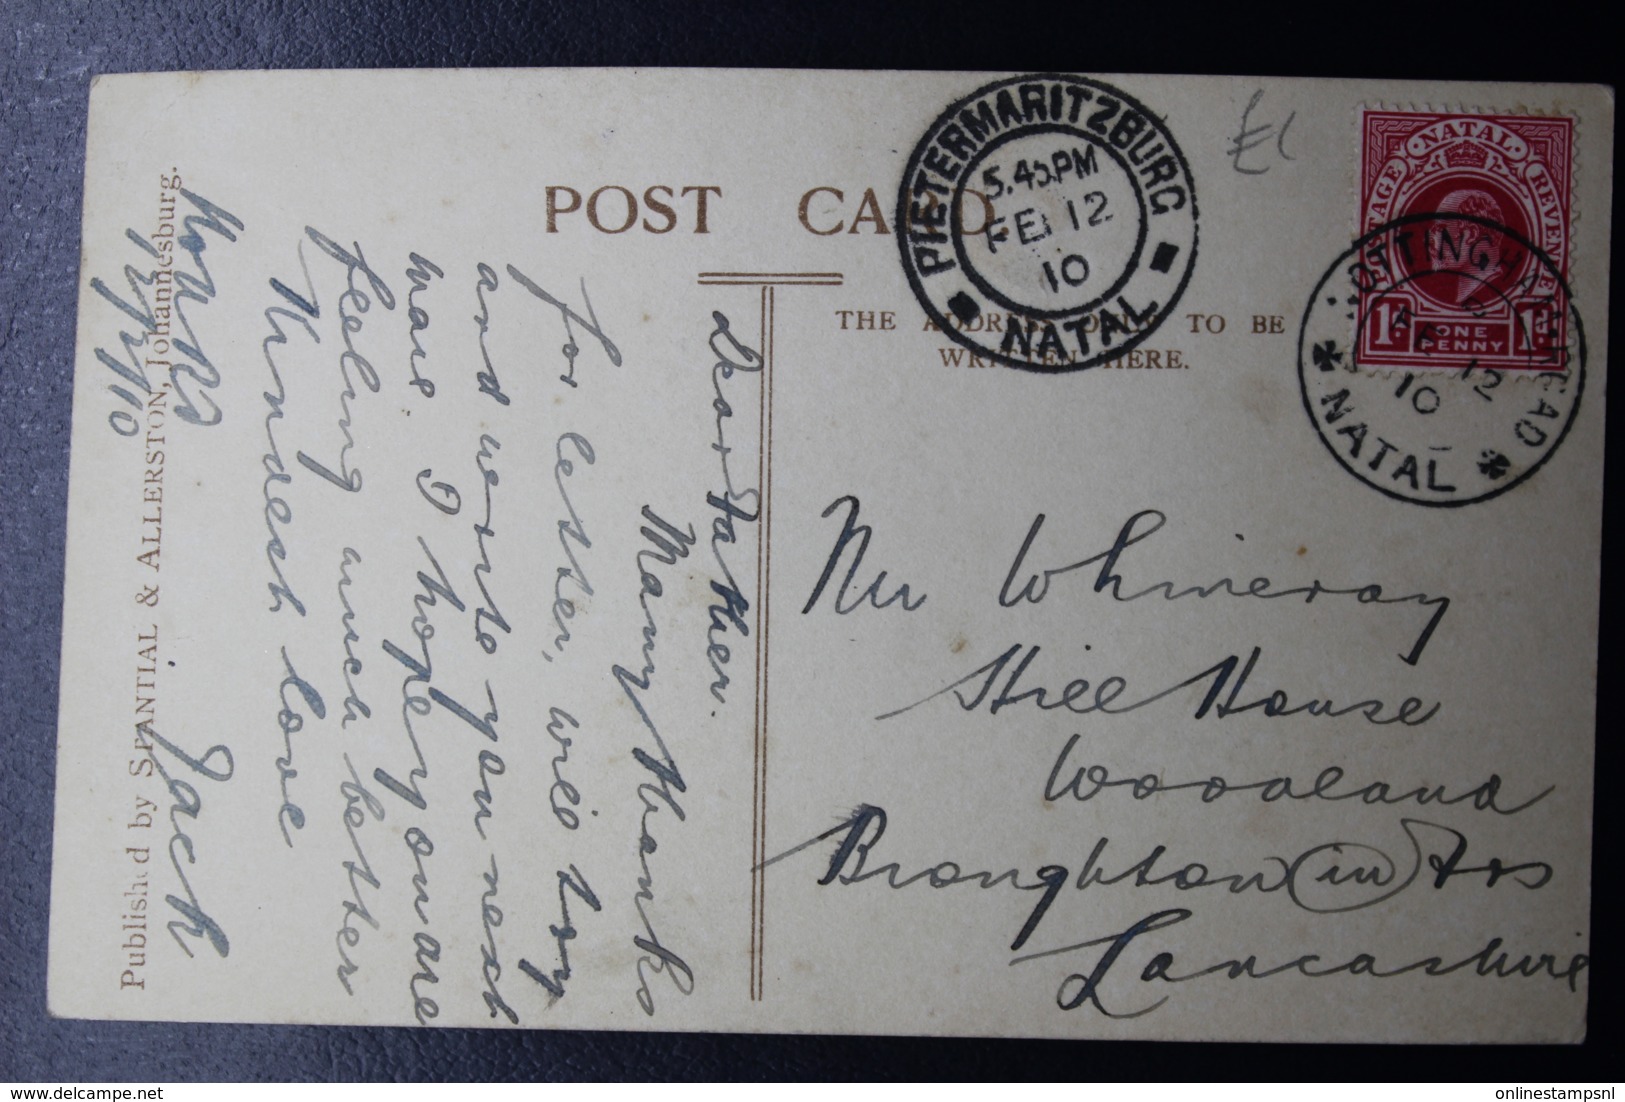 POST CARD
THE ADDRESS ONLY TO BE
WRITTEN HERE.
PIETERMARITZBURG
5.45PM
FE 12
10
NATAL
NATAL
POSTAGE
REVENUE
1D.
ONE
PENNY
1D.
NOTTINGHAM ROAD
FE 12
10
NATAL
£1
Mr Whineray
Hill House
Woodland
Broughton (in) Frs
Lancashire
Dear Father.
Many thanks
for letter, will try
and write you next
mail I hope you are
feeling much better
Kindest love
Jack
12/2/10
Published by SPANTIAL & ALLERSTON, Johannesburg.
www.delcampe.net
onlinestampsnl